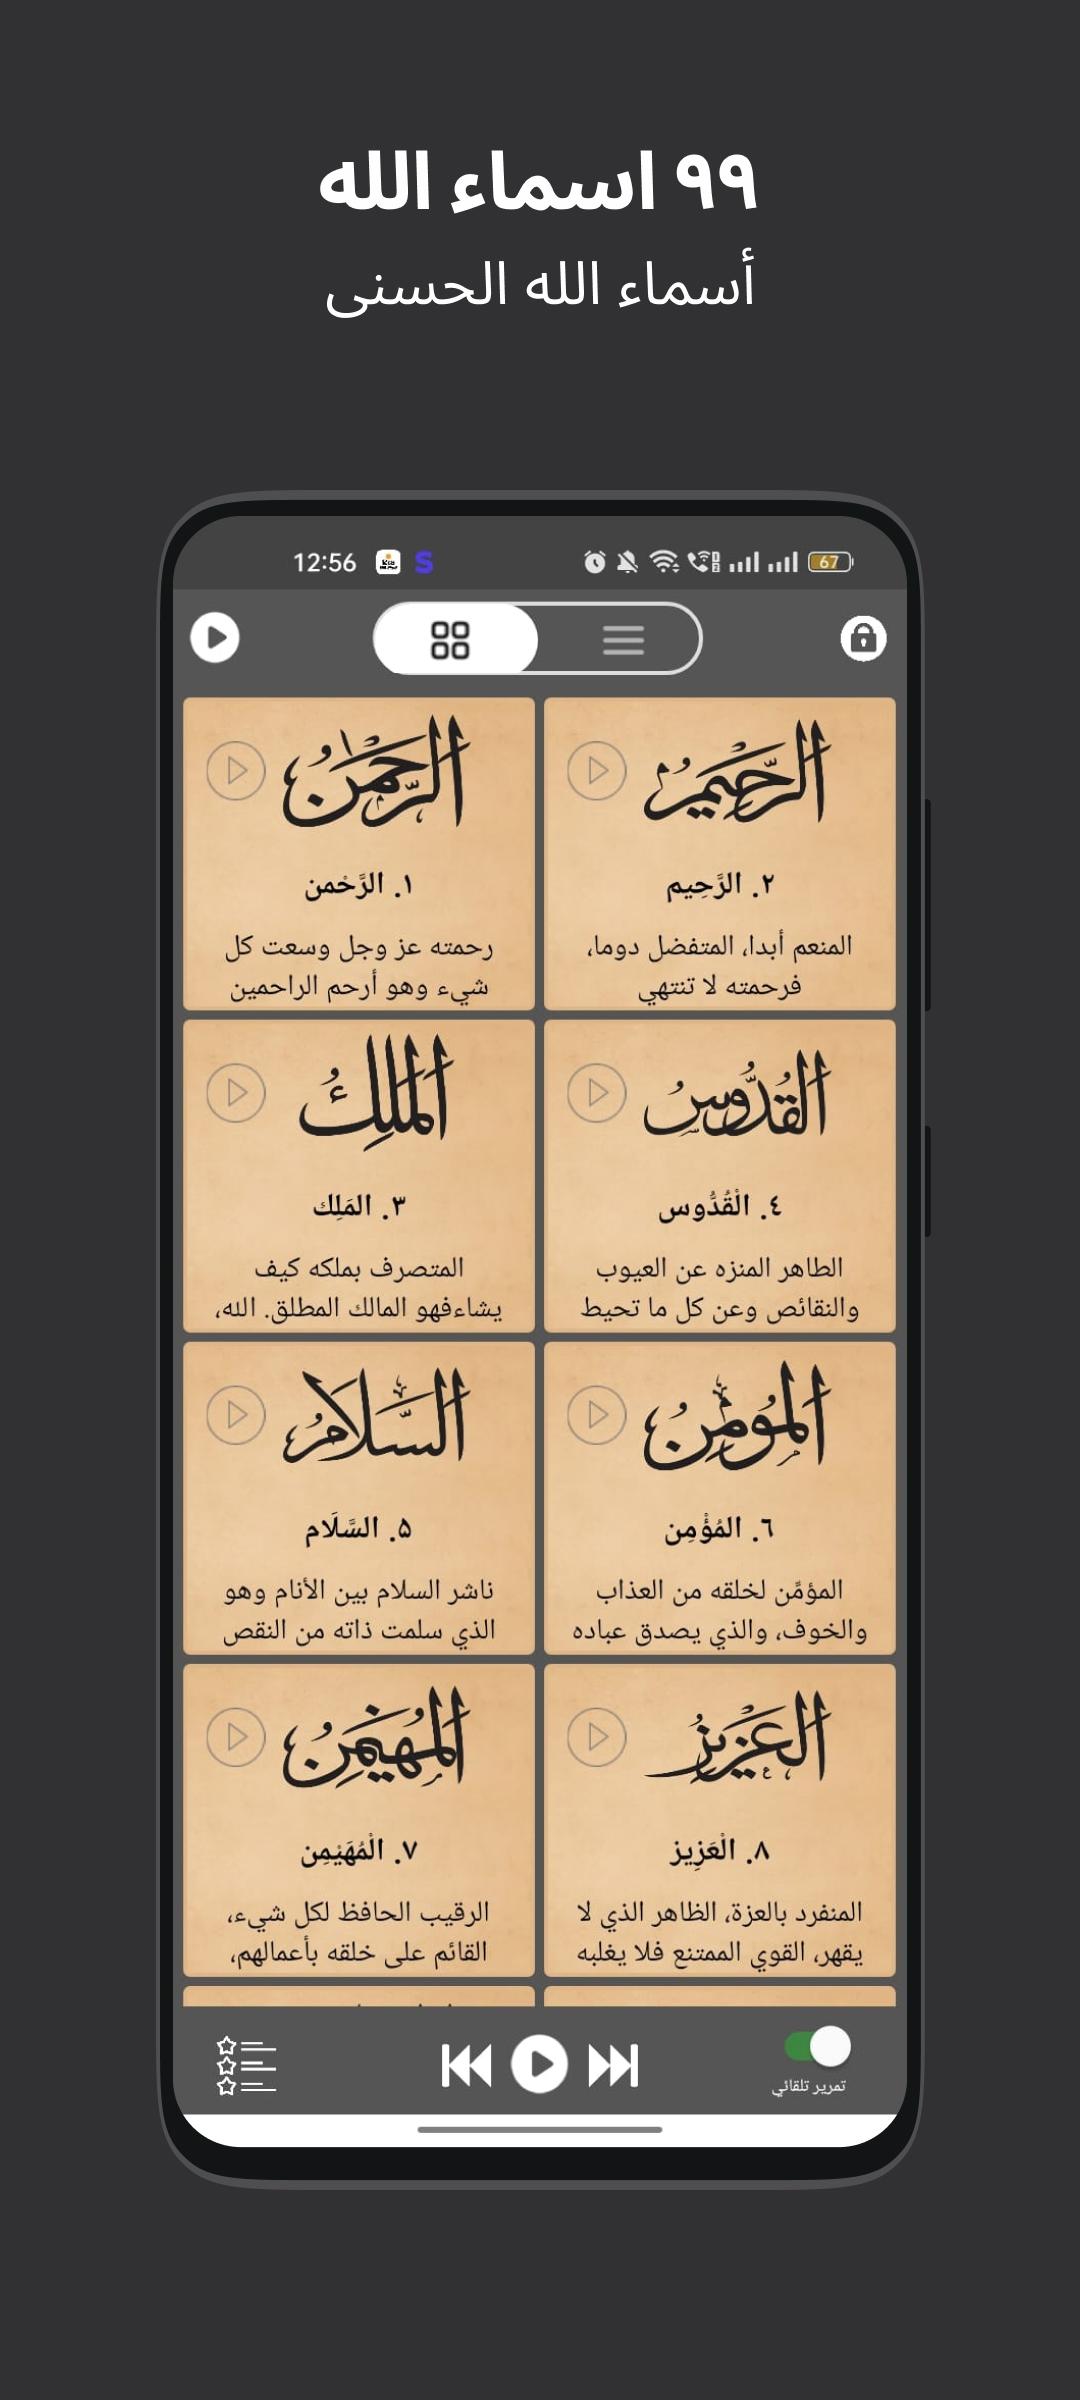 ٩٩ اسماء الله
أسماء الله الحسنى
12:56
S
67
الرَّحِيمُ
٢. الرَّحِيم
المنعم أبدا، المتفضل دوما،
فرحمته لا تنتهي
الرَّحْمَنُ
١. الرَّحْمن
رحمته عز وجل وسعت كل
شيء وهو أرحم الراحمين
القُدُّوسُ
٤. الْقُدُّوس
الطاهر المنزه عن العيوب
والنقائص وعن كل ما تحيط
المَلِكُ
٣. المَلِك
المتصرف بملكه كيف
يشاءفهو المالك المطلق. الله،
المُومِنُ
٦. المُؤْمِن
المؤمَّن لخلقه من العذاب
والخوف، والذي يصدق عباده
السَّلَامُ
۵. السَّلَام
ناشر السلام بين الأنام وهو
الذي سلمت ذاته من النقص
العَزِيزُ
٨. الْعَزِيز
المنفرد بالعزة، الظاهر الذي لا
يقهر، القوي الممتنع فلا يغلبه
المُهَيْمِنُ
٧. الْمُهَيْمِن
الرقيب الحافظ لكل شيء،
القائم على خلقه بأعمالهم،
تمرير تلقائي